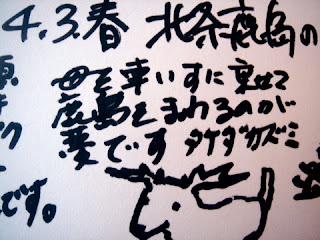 4.3.春 北条鹿島の
母を車いすに乗せて
鹿島をまわるのが
夢です タケダカズミ
です。